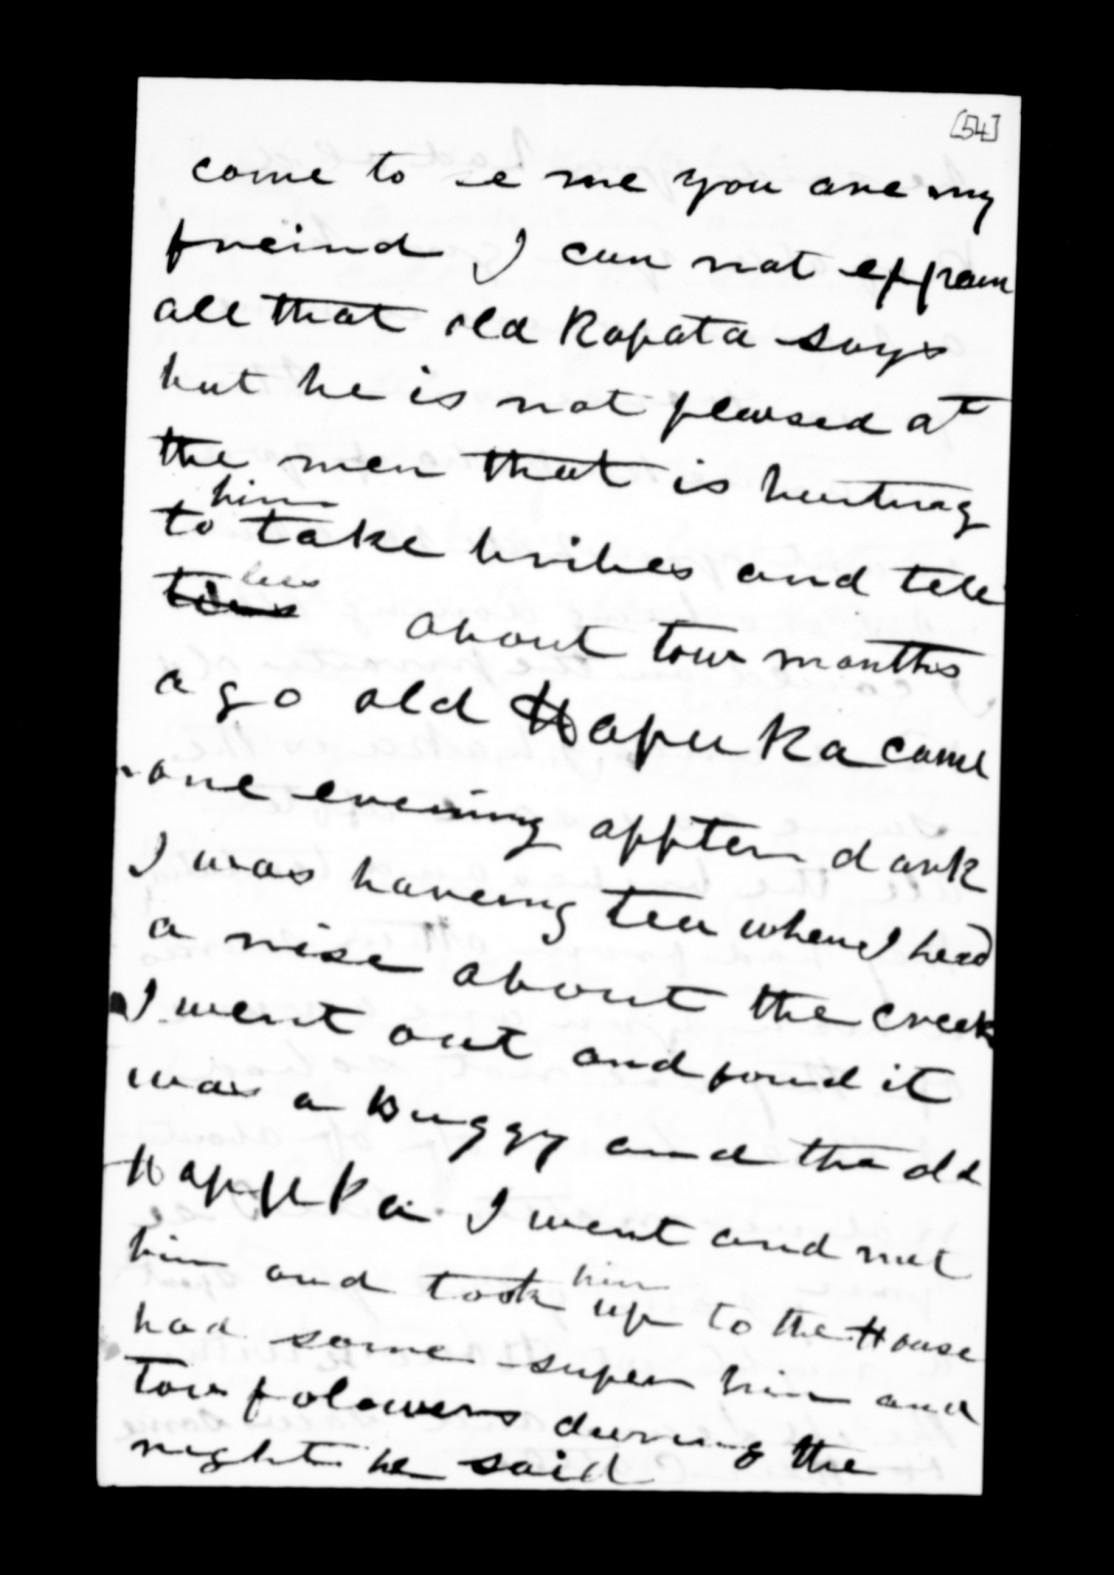 [54]
come to se me you are my
freind I can not exxplain
all that old Ropata says
but he is not pleased at
the men that is hurting
him
to take bribes and tell
lies
about tow months
ago old Hapuka came
one evening affter dark
I was haveing tea when I herd
a nise about the creek
I went out and found it
was a buggy and the old
Happuka I went and met
him and took him up to the House
had some super him and
tow folowers during the
night he said